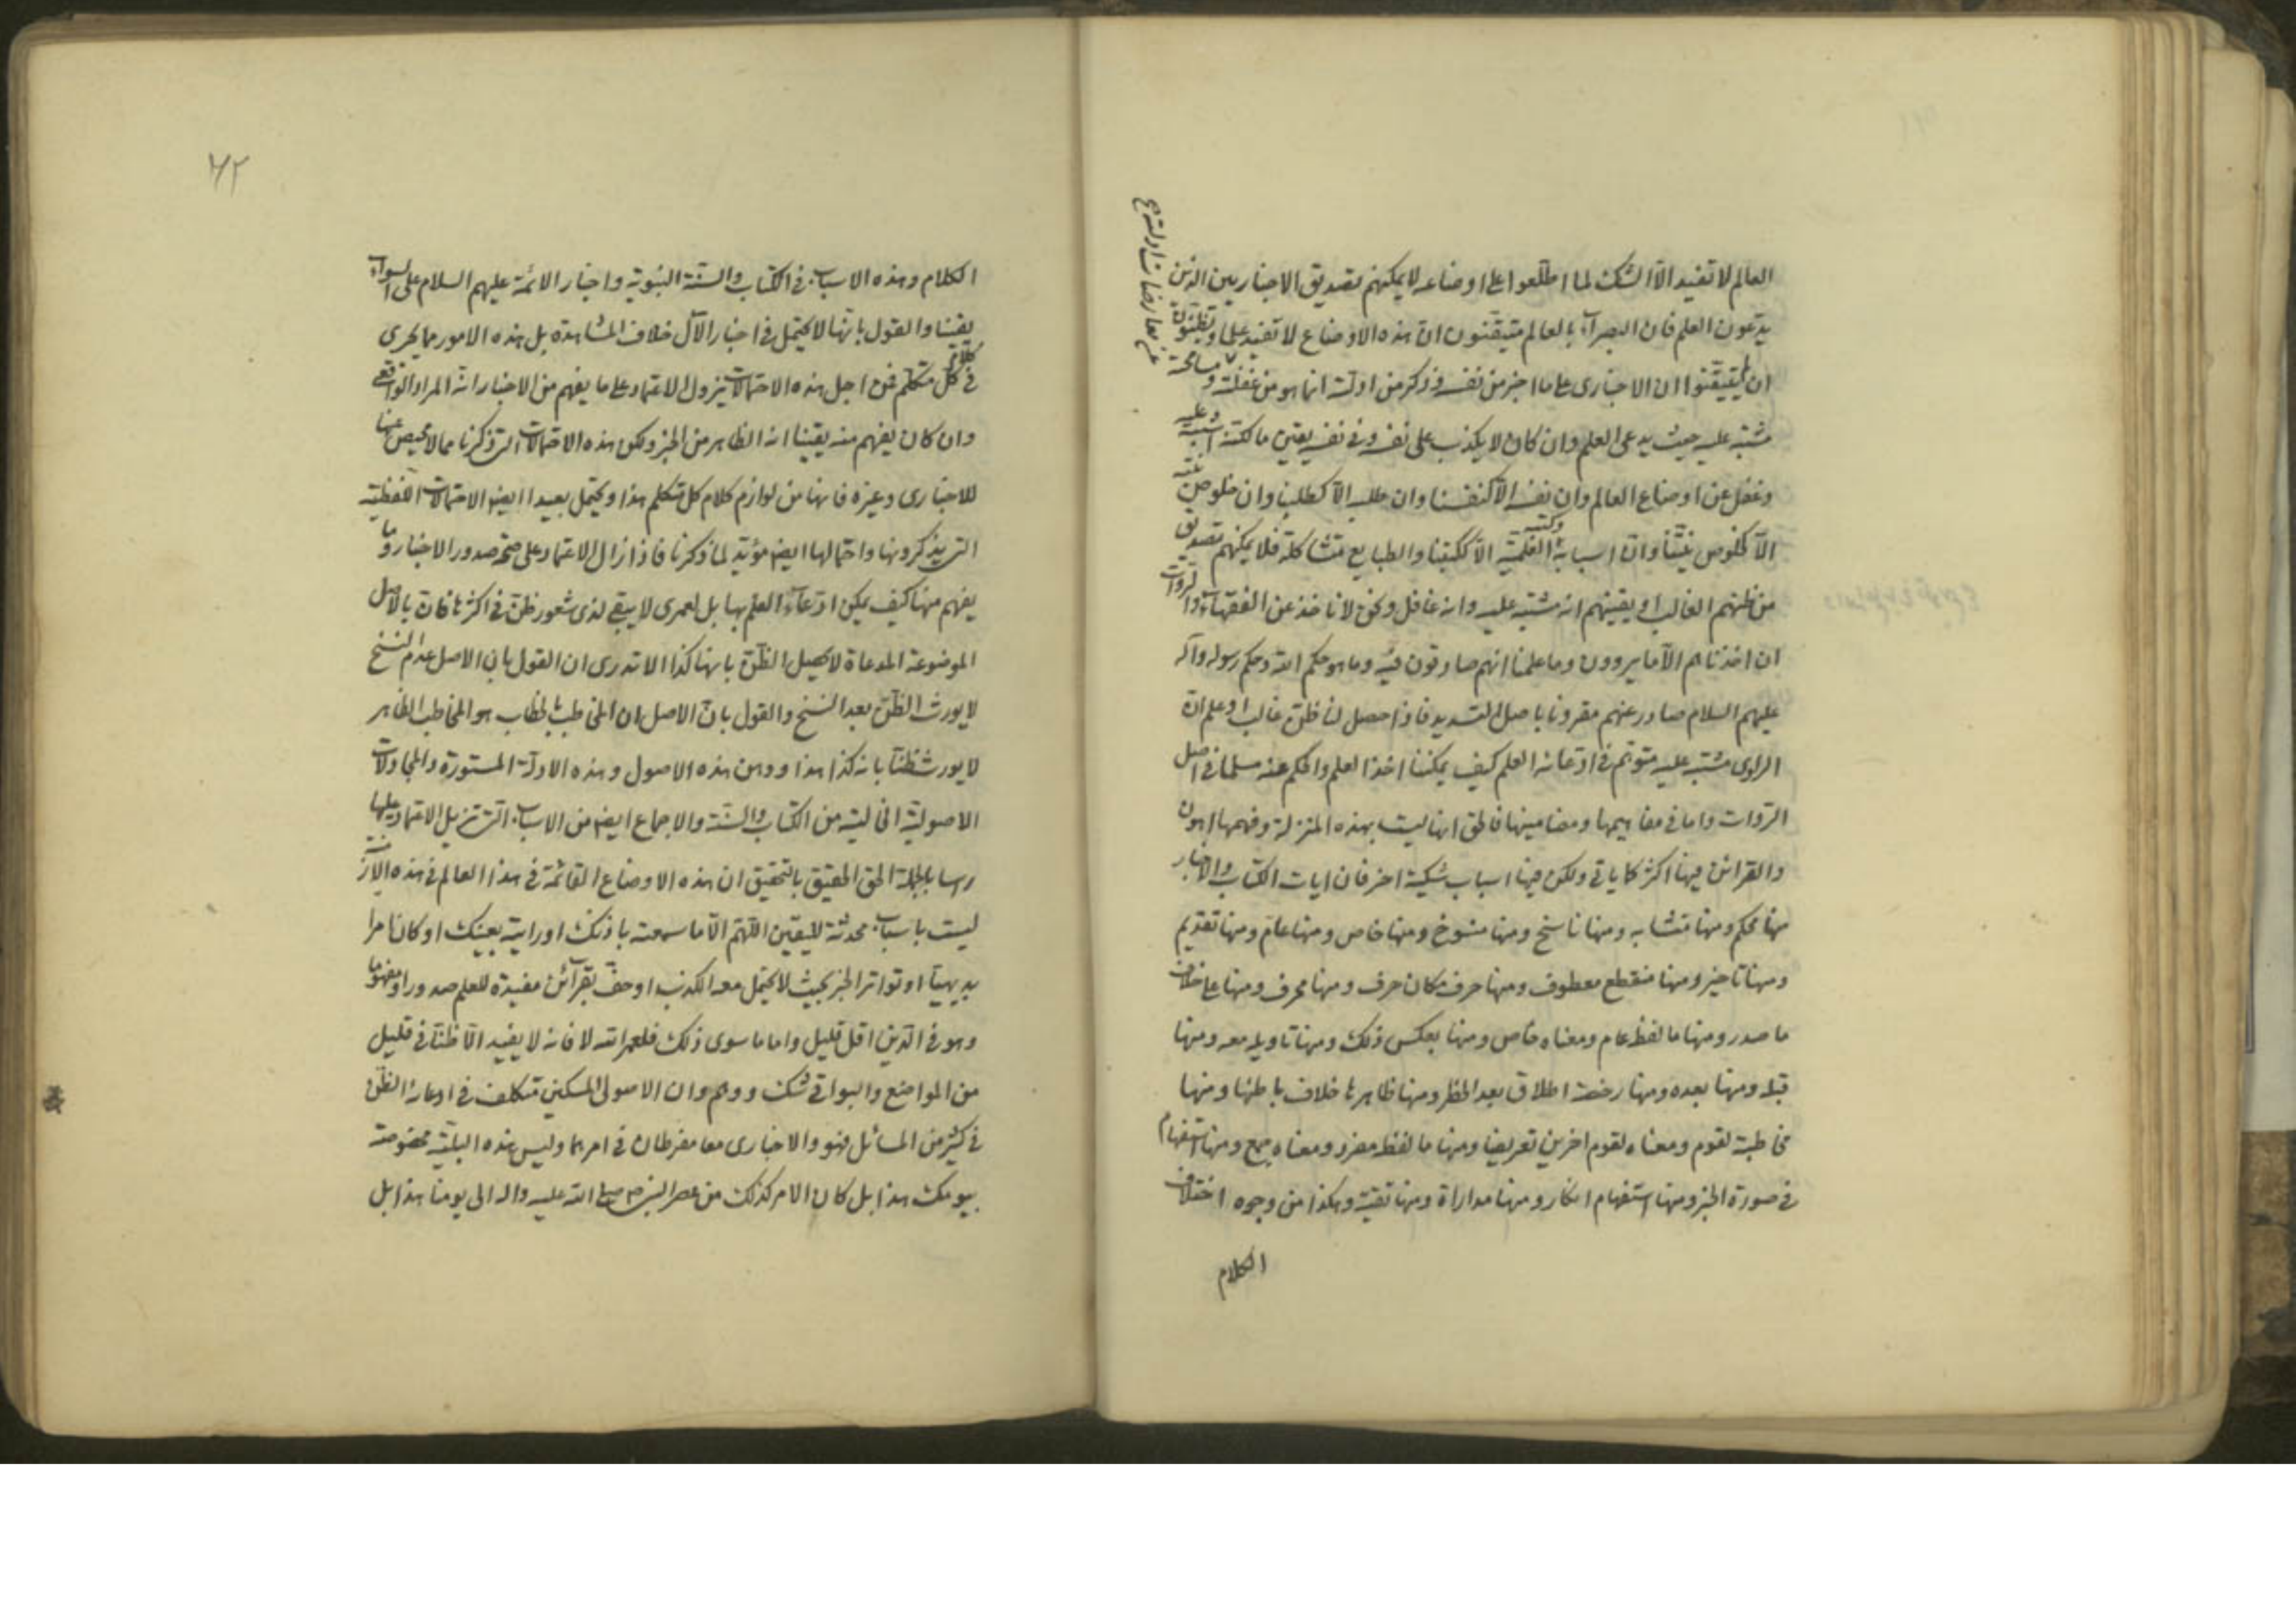 العالم لا تفيد الّا الشك لما اطّلعوا على اوضاعه لا يمكنهم تصديق الاخباريين الذين
يدّعون العلم فان البصراء بالعالم متيقّنون انّ هذه الاوضاع لا تفيد علما ويظنّون
ان لم يتيقّنوا ان الاخبارى على ما اخبر من نفسه وذكر من ادلته انما هو من غفلة ومسامحة
عن معارضات ادلته صح
مشتبه عليه حيث يدعى العلم وان كان لا يكذب على نفسه وفى نفسه يقين ما لكنه اشتبه عليه
وغفل عن اوضاع العالم وان نفسه الّا كنفسنا وان طلبه الّا كطلبنا وان خلوص نيته
الّا كخلوص نيّتنا وانّ اسبابه العلمية وكتبه الّا ككتبنا والطبايع متشاكلة فلا يمكنهم تصديق
من ظنهم الغالب او يقينهم انه مشتبه عليه وانه غافل ونحن لا ناخذ عن الفقهاء والرواة
ان اخذناهم الّا ما يروون وما علمنا انهم صادقون فيه وما هو حكم الله وحكم رسوله وآله
عليهم السلام صادر عنهم مقرونا باصل التسديد فاذا حصل لنا ظنّ غالب او علم انّ
الراوى مشتبه عليه متوهّم فى ادّعائه العلم كيف يمكننا اخذ العلم والحكم عنه مسلما فى اصل
الرّوات واما فى مفاهيمها ومضامينها فالحق انها ليست بهذه المنزلة وفهمها اهون
والقرائن فيها اكثر كما ياتى ولكن فيها اسباب شكية اخر فان ايات الكتاب والاخبار
منها محكم ومنها متشابه ومنها ناسخ ومنها منسوخ ومنها خاص ومنها عامّ ومنها تقديم
ومنها تاخير ومنها منقطع معطوف ومنها حرف مكان حرف ومنها محرف ومنها على خلاف
ما صدر ومنها ما لفظه عام ومعناه خاص ومنها بعكس ذلك ومنها تاويله معه ومنها
قبله ومنها بعده ومنها رخصة اطلاق بعد الحظر ومنها ظاهرها خلاف باطنها ومنها
مخاطبة لقوم ومعناه لقوم اخرين تعريضا ومنها ما لفظه مفرد ومعناه جمع ومنها استفهام
فى صورة الخبر ومنها استفهام انكار ومنها مداراة ومنها تقيّة وهكذا من وجوه اختلاف
الكلام
۷۲
الكلام وهذه الاسباب فى الكتاب والسّنّة النبوية واخبار الائمّة عليهم السلام على السواء
يقينا والقول بانّها لا يحتمل فى اخبار الآل خلاف المشاهدة بل هذه الامور مما يجرى
فى كلام كل متكلّم فمن اجل هذه الاحتمالات يزول الاعتماد على ما يفهم من الاخبار انّه المراد الواقعى
وان كان يفهم منه يقينا انه الظاهر من الخبر ولكن هذه الاحتمالات التى ذكرنا مما لا محيص عنها
للاخبارى وغيره فانها من لوازم كلام كل متكلم هذا ويحتمل بعيدا ايضا الاحتمالات اللفظية
التى يذكرونها واحتمالها ايضا مؤيّد لما ذكرنا فاذا زال الاعتماد على صحّة صدور الاخبار وما
يفهم منها كيف يمكن ادّعاء العلم بها بل لعمرى لا يبقى لذى شعور ظنّ فى اكثرها فانّ بالاصل
الموضوعة المدعاة لا يحصل الظّنّ بانها كذا الا تدرى ان القول بان الاصل عدم النسخ
لا يورث الظّنّ بعد النسخ والقول بانّ الاصل ان المخاطب بالخطاب هو المخاطب الظاهر
لا يورث ظنّا بانه كذا هذا ووهن هذه الاصول وهذه الادلّة المستورة والمجادلات
الاصوليّة الخالية من الكتاب والسّنّة والاجماع ايضا من الاسباب التى تزيل الاعتماد عليها
راسا بالجملة الحق الحقيق بالتحقيق ان هذه الاوضاع القائمة فى هذا العالم فى هذه الازمنة
ليست باسباب محدثة لليقين اللّهمّ الّا ما سمعته باذنك او رايته بعينك او كان امرا
بديهيّا او تواتر الخبر بحيث لا يحتمل معه الكذب او حفّ بقرآئن مفيدة للعلم صدورا ومفهوما
وهو فى الدّين اقل قليل واما ما سوى ذلك فلعمر الله لا فانه لا يفيد الّا ظنّا فى قليل
من المواضع والبواقى شك ووهم وان الاصولى المسكين متكلف فى ادعائه الظنّ
فى كثير من المسائل فهو والاخبارى معا مفرطان فى امرهما وليس هذه البليّة مخصوصة
بيومك هذا بل كان الامر كذلك من عصر النبى ص صلى الله عليه واله الى يومنا هذا بل